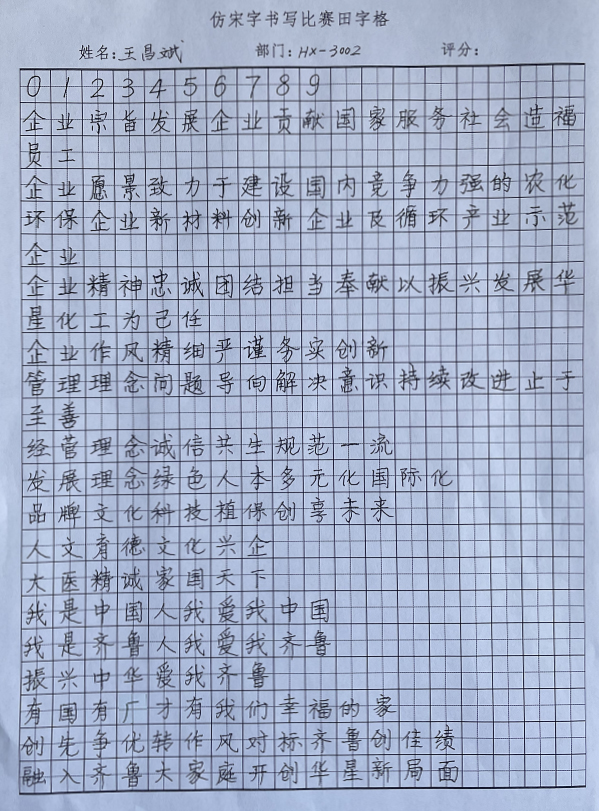 仿宋字书写比赛田字格
姓名:王昌斌 部门:HX-3002 评分:
0 1 2 3 4 5 6 7 8 9
企业宗旨发展企业贡献国家服务社会造福
员工
企业愿景致力于建设国内竞争力强的农化
环保企业新材料创新企业及循环产业示范
企业
企业精神忠诚团结担当奉献以振兴发展华
星化工为己任
企业作风精细严谨务实创新
管理理念问题导向解决意识持续改进止于
至善
经营理念诚信共生规范一流
发展理念绿色人本多元化国际化
品牌文化科技植保创享未来
人文育德文化兴企
大医精诚家国天下
我是中国人我爱我中国
我是齐鲁人我爱我齐鲁
振兴中华爱我齐鲁
有国有厂才有我们幸福的家
创先争优转作风对标齐鲁创佳绩
融入齐鲁大家庭开创华星新局面